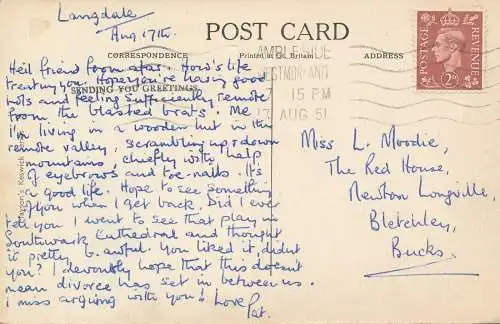 Langdale
Aug 17th.
POST CARD
CORRESPONDENCE
Printed in Gt. Britain
ADDRESS
SENDING YOU GREETINGS
Heil friend from afar. How's life
treating you. Hope you're having good
hols and feeling sufficiently remote
from the blasted brats. Me
I'm living in a wooden hut in the
remote valley, scrambling up & down
mountains, chiefly with help
of eyebrows and toe-nails. It's
a good life. Hope to see something
of you when I get back. Did I ever
tell you I went to see that play in
Southwark Cathedral and thought
it pretty b. awful. You liked it, didnt
you? I devoutly hope that this doesn't
mean divorce has set in between us.
I miss arguing with you! Love
Pat.
Mayson's Keswick
AMBLESIDE
WESTMORLAND
15 PM
17 AUG 51
POSTAGE
REVENUE
2D
Miss L. Moodie,
The Red House,
Newton Longville,
Bletchley,
Bucks.